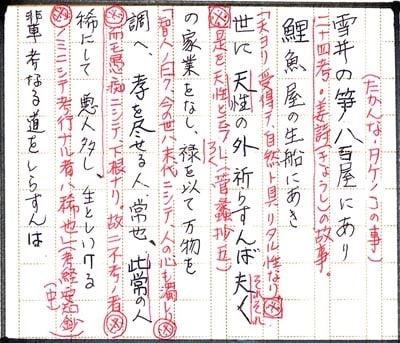 (たかんな・タケノコの事)
雪井の笋八百屋にあり
二十四考。姜詩(きょうし)の故事。
鯉魚屋の生船にあり
「天ヨリ受得テ、自然ト具リタル性なり
世に天性の外祈らずんば夫〱
それそれ
是を天性と云フ」(普蠡抄五)
の家業をなし、禄を以て万物を
ろく
「智人ノ曰ク、今の世ハ末代ニシテ、人の心も濁り
調へ、孝を尽せる人常也、此常の人
而モ愚痴ニシテ、下根ナリ、故ニ不孝ノ者
稀にして悪人多し、生としいける
ノミニシテ孝行ナル者ハ稀也」(孝経
(中)
輩孝なる道をしらずんは